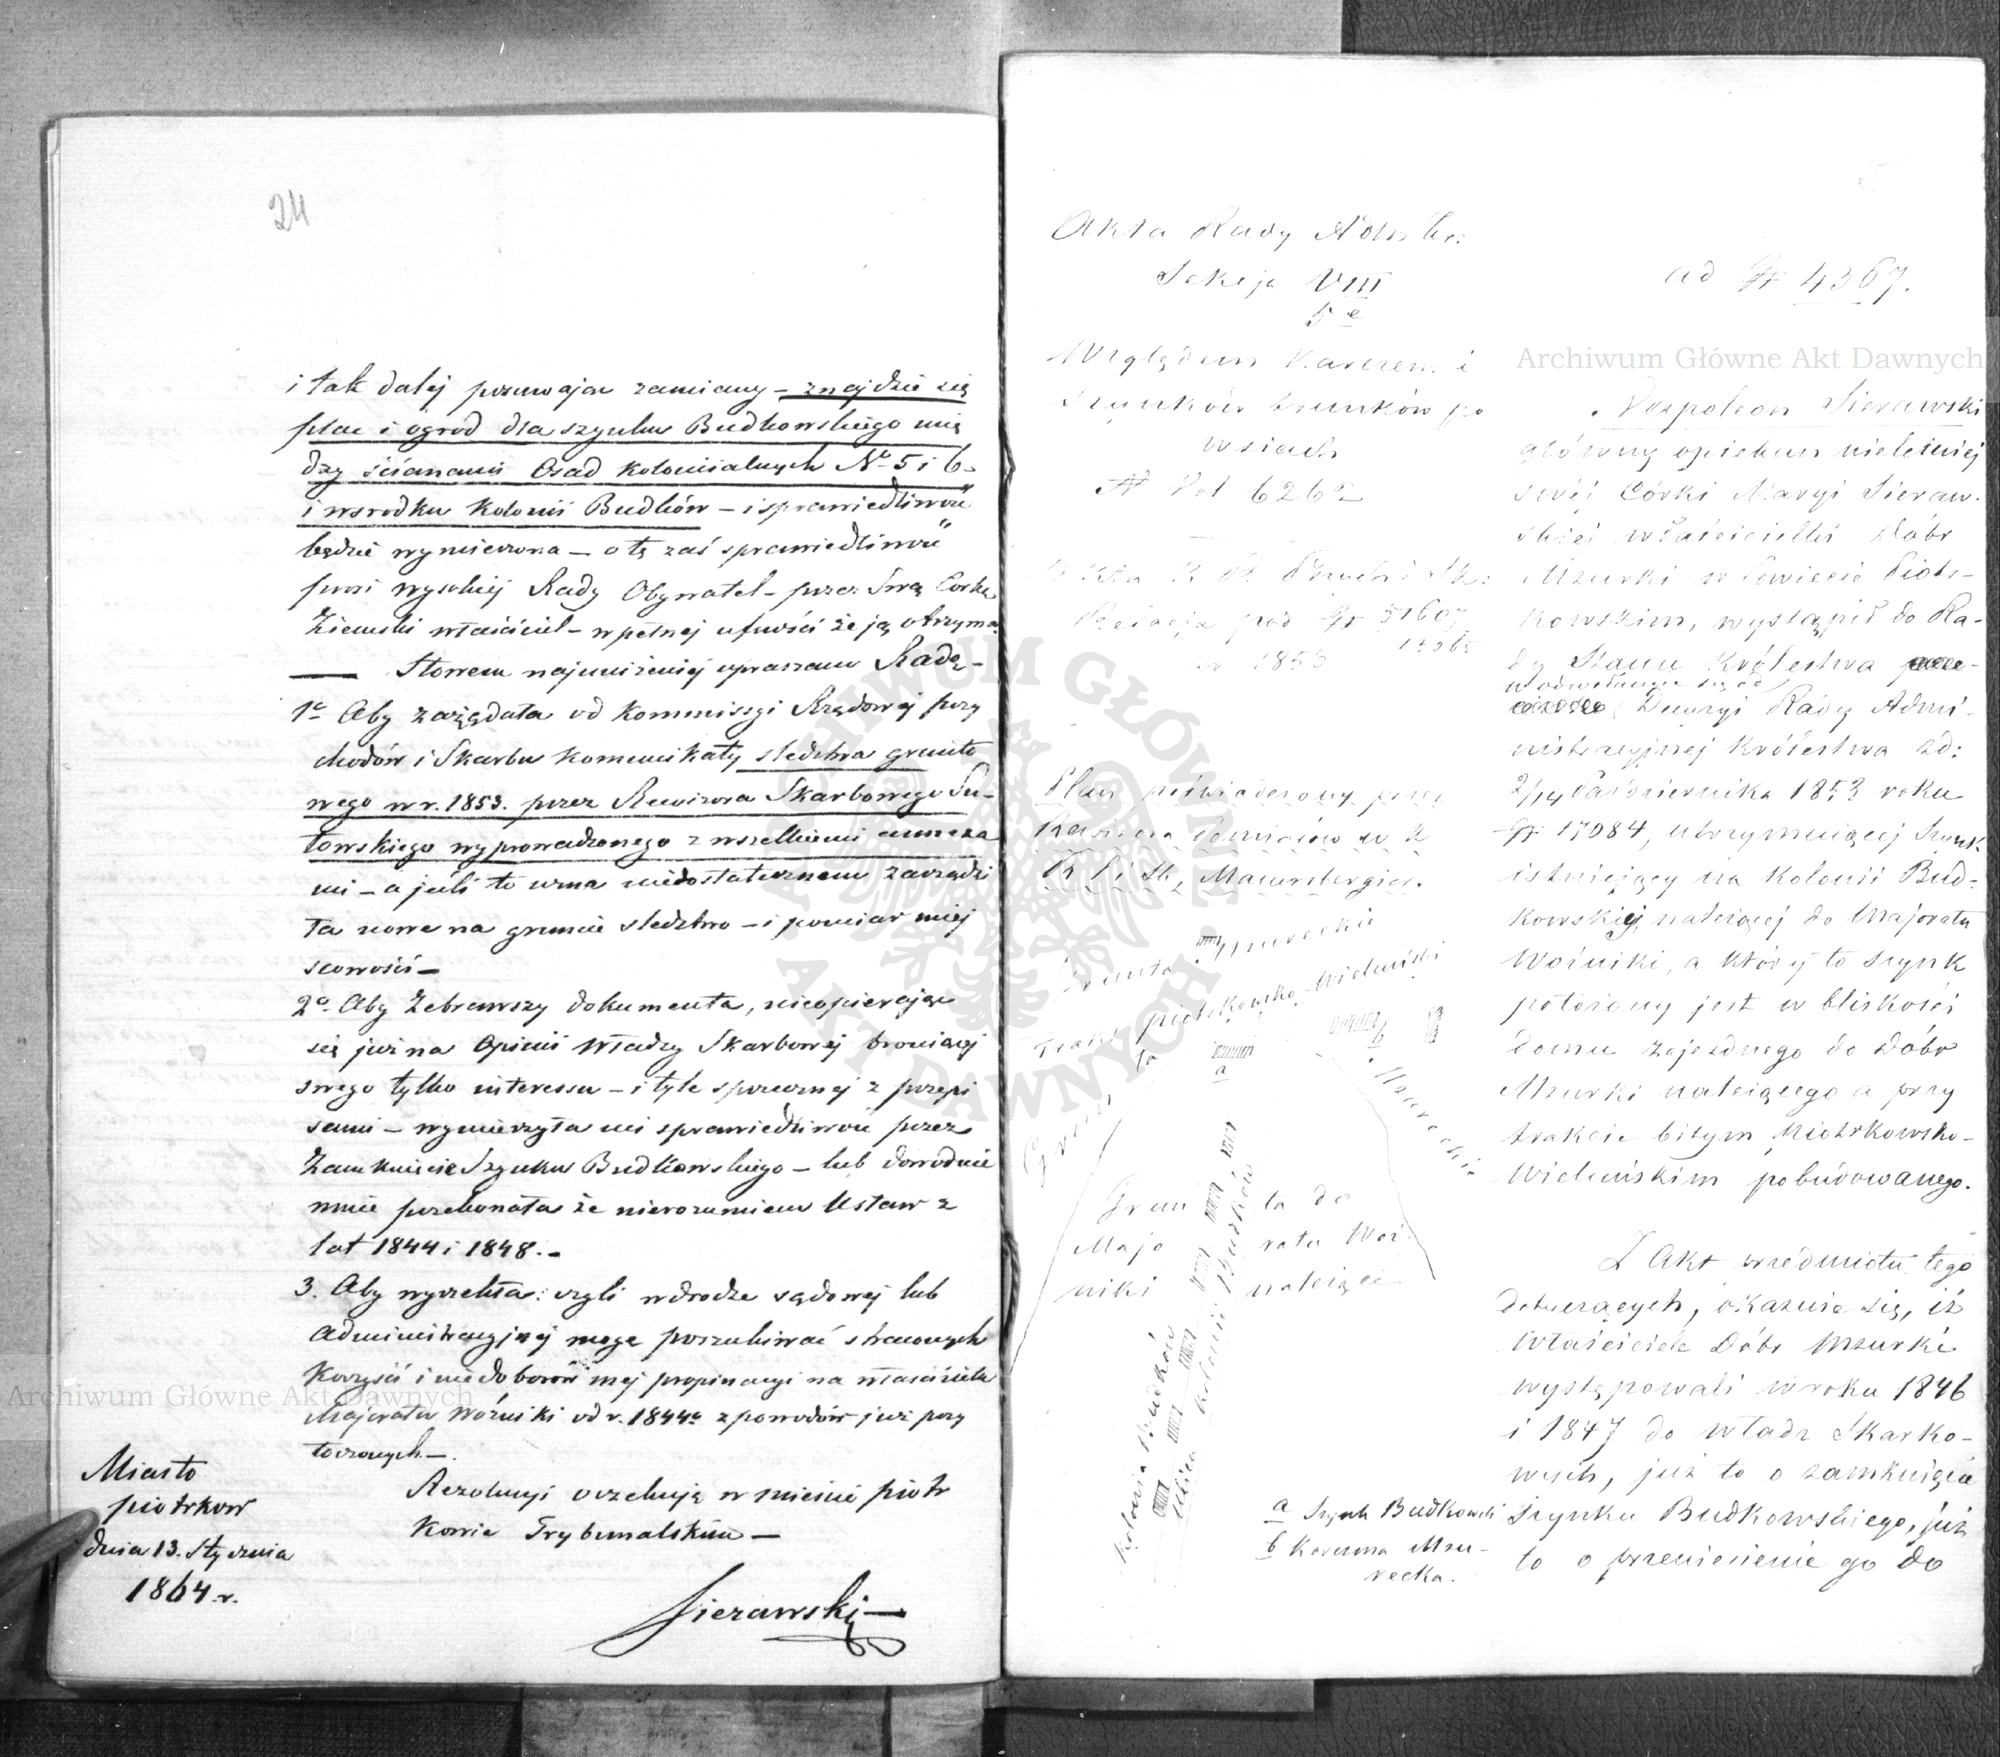 24
i tak dalej posuwając zamiany – znajdzie się
plac i ogród dla szynku Budkowskiego mię
dzy ścianami Osad kolonialnych No 5 i 6 –
i wsrodku kolonii Budków – i sprawiedliwość
będzie wymierzona – o tę zaś sprawiedliwość
prosi wysokiej Rady Obywatel – przez Swą Corkę
Ziemski właściciel – w pełnej ufności że ją otrzyma
— Słowem najuniżeniej upraszam Radę –
1o Aby zażądała od Kommissyi Rządowej przy
chodów i Skarbu komunikaty śledztwa grunto
wego w r. 1853. przez Rewizora Skarbowego
towskiego wyprowadzonego z wszelkiemi annexa
mi – a jeśli to uzna niedostatecznem zarządzi
ła nowe na gruncie śledztwo – i pomiar miej
scowości –
2o Aby Zebrawszy dokumenta, nieopierając
się już na Opinii Władzy Skarbowej broniącej
swego tylko interessu – i tyle sprzecznej z przepi
sami – wymierzyła mi sprawiedliwość przez
Zamknięcie Szynku Budkowskiego – lub dowodnie
mnie przekonała że nierozumiem Ustaw z
lat 1844 i 1848. –
3. Aby wyrzekła: czyli wdrodze sądowej lub
Administracyjnej mogę poszukiwać straconych
Korzyści i niedoborów mej propinacyi na właścicielu
Majoratu Woźniki od r. 1844o z powodów już przy
toczonych. –
Rezolucyi oczekuję w mieście Piotr
kowie Trybunalskim –
Miasto
piotrkow
dnia 13. Stycznia
1864. r.
Sierawski
Akta Rady Admtr:
Sekcja VIII
5 e
Względem Karczem i
Szynków trunków po
wsiach
No Vol 6262
Relacja pod No 51607
w 1853
Plan poświadczony przez
Rewizora Pomiarów w K
R P i Sk,
Grunta Mzureckie
Trakt piotrkowsko Wieluński
a
b
Mzureckie
Grun ta do
Majo ratu Woź
niki należące
Kolonia Budków
Ulica kolonii Budków
a Szynk Budkowski
b Karczma Mzu-
recka.
ad No 4367.
Napoleon Sierawski
główny opiekun nieletniej
swéj Córki Maryi Sieraw-
skiej właścicielki Dóbr
Mzurki w Powiecie Piotr-
kowskim, wystąpił do Ra-
dy Stanu Królestwa
w odwołaniu się od
Decyzyi Rady Admi-
nistracyjnej Królestwa zd:
2/14 Października 1853 roku
No 17084, utrzymującej Szynk
istniejący na kolonii Bud-
kowskiej, należącej do Majoratu
Woźniki, a który to szynk
położony jest w bliskości
domu zajezdnego do Dóbr
Mzurki należącego a przy
trakcie bitym Piotrkowsko-
Wieluńskim pobudowanego.
Z Akt przedmiotu tego
dotyczących, okazuie się, iż
Właściciele Dóbr Mzurki
występowali w roku 1846
i 1847 do władz Skarbo-
wych, już to o zamknięcie
Szynku Budkowskiego, już
to o przeniesienie go do
Archiwum Główne Akt Dawnych
Archiwum Główne Akt Dawnych
ARCHIWUM GŁÓWNE AKT DAWNYCH